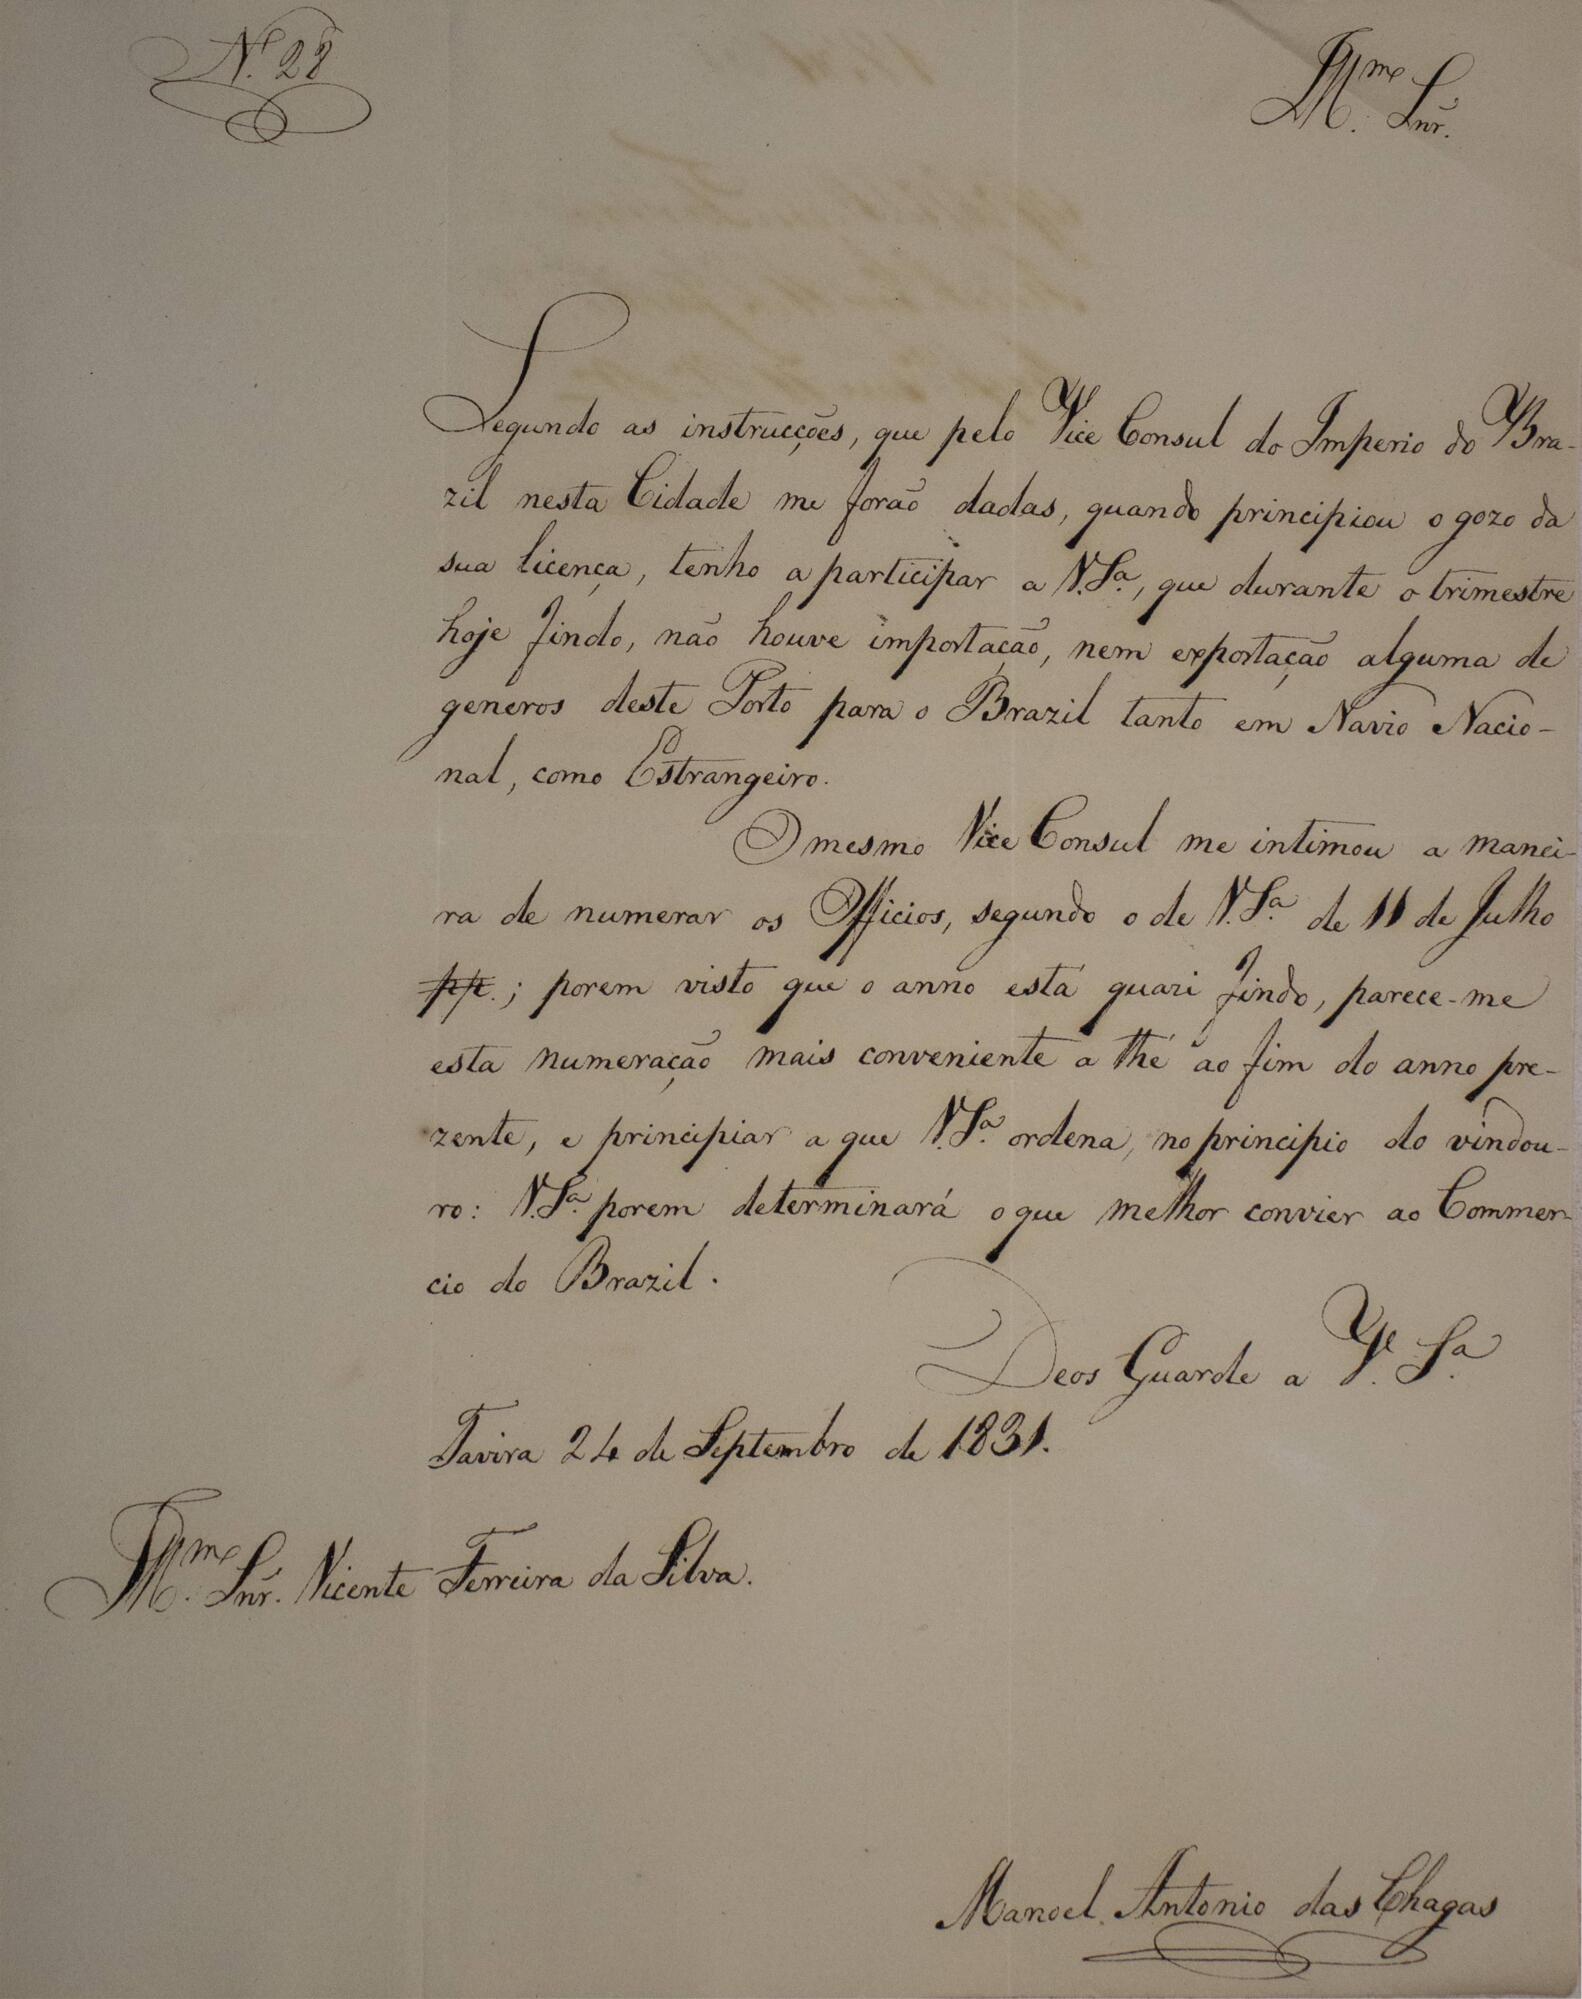 N.º 28
Illm.º Snr.
Segundo as instrucções, que pelo Vice Consul do Imperio do Bra-
zil nesta Cidade me forão dadas, quando principiou o gozo da
sua licença, tenho a participar a V.Sª., que durante o trimestre
hoje findo, não houve importação, nem exportação alguma de
generos deste Porto para o Brazil tanto em Navio Nacio-
nal, como Estrangeiro.
O mesmo Vice Consul me intimou a manei-
ra de numerar os Officios, segundo o de V.Sª. de 11 de Julho
pp.; porem visto que o anno está quazi findo, parece-me
esta numeração mais conveniente a thé ao fim do anno pre-
zente, e principiar a que V.Sª. ordena, no principio do vindou-
ro: V.Sª. porem determinará o que melhor convier ao Commer-
cio do Brazil.
Deos Guarde a V. Sª.
Tavira 24 de Septembro de 1831.
Illm.º Snr. Vicente Ferreira da Silva.
Manoel Antonio das Chagas